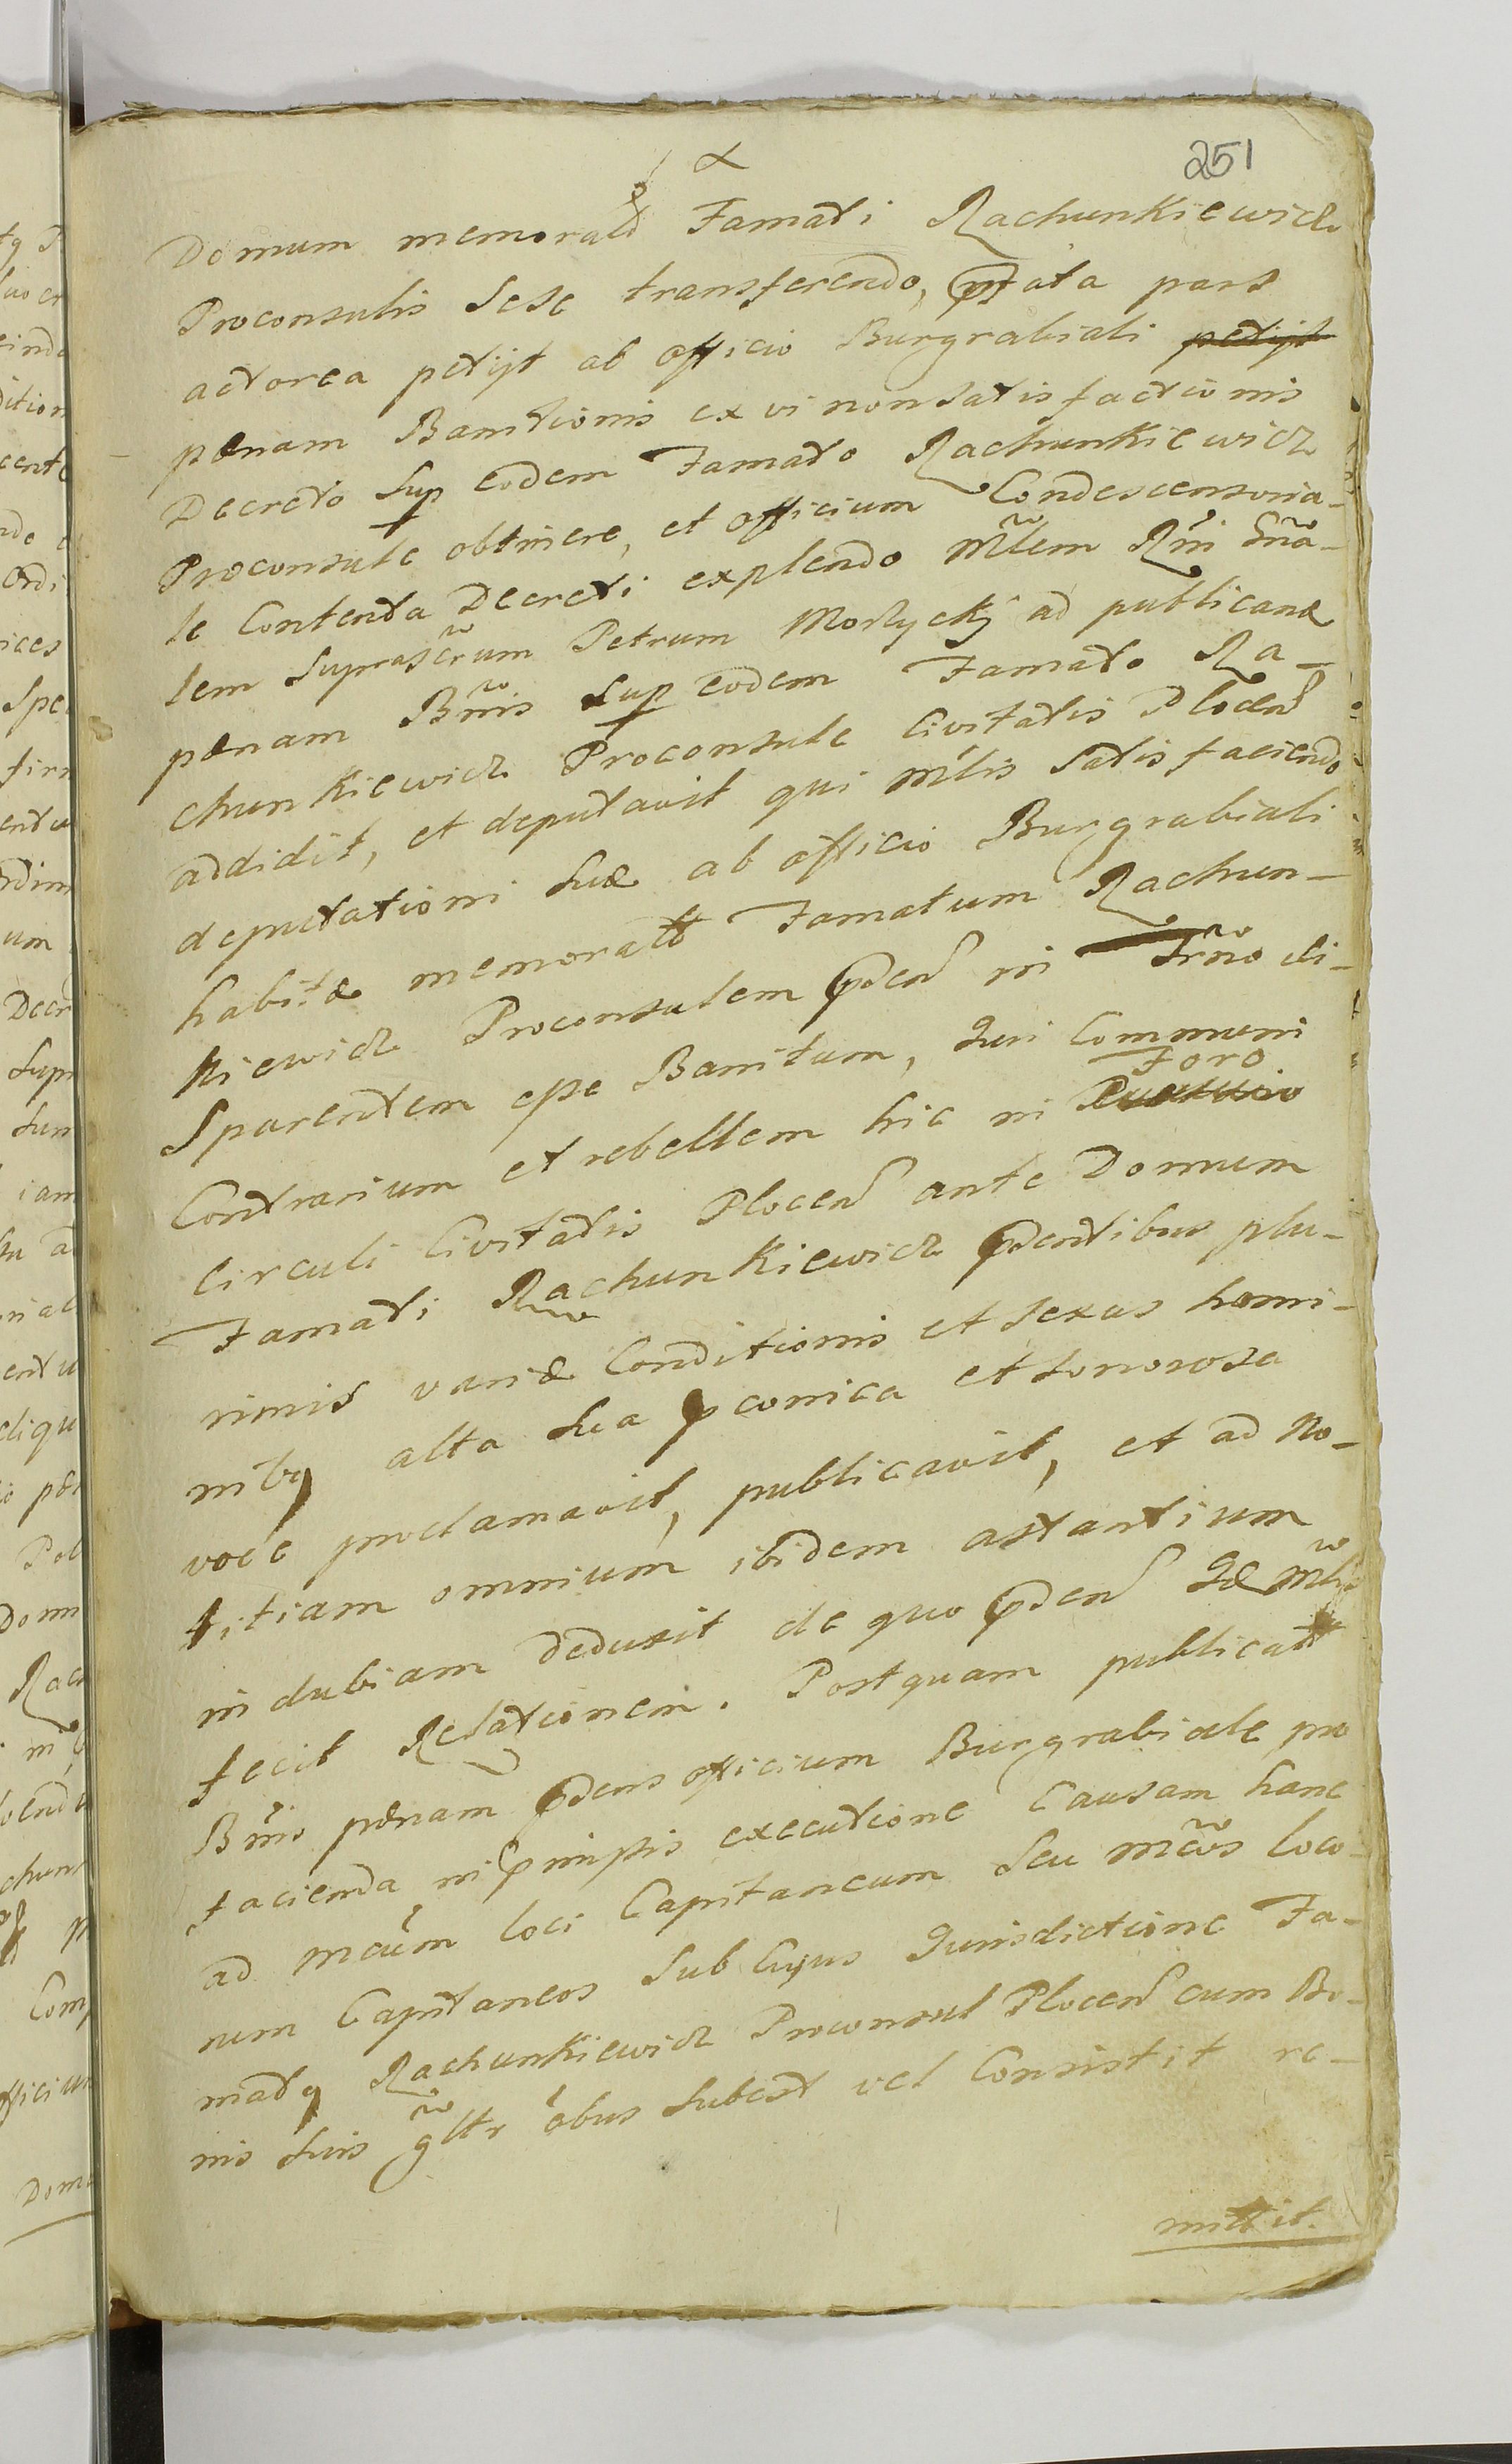 251
Domum memorati Famati Rachunkiewicz
Proconsulis Sese transferendo, pfata pars
actorea petijt ab officio Burgrabiali petijt
pænam Banitionis ex vi nonsatisfactionis
Decreto Sup eodem Famato Rachunkiewicz
Proconsule obtinere, et officium Condescensoria-
le Contenta Decreti explendo Mlem Rni Gnã-
lem Suprascrum Petrum Mostycky ad publicanã
pænam Bnis Sup eodem Famato Ra-
chunkiewicz Proconsule Civitatis Plocen
addidit, et deputavit qui Mlis Satisfaciendo
deputationi Suæ ab officio Burgrabiali
habitæ memorat Famatum Rachun-
kiewicz Proconsulem pden in Trno di-
Sparentem esse Banitum, Juri Communi
Foro
Contrarium et rebellem hic in
Circuli Civitatis Plocen ante Domum
Famati Rachunkiewicz pdentibus plu-
rimis variæ Conditionis et Sexus homi-
nibq alta Sua pconica et Sonorosa
voce proclamavit, publicavit, et ad No-
titiam omnium ibidem astantium
indubiam deduxit de quo pden Idē Mlis
fecit Relationem. Postquam publicat
Bnis pænam pdens officium Burgrabiale pro
facienda in pmissis executione Causam hanc
ad Mcum loci Capitaneum Seu Mcos loco-
rum Capitaneos Sub Cujus Jurisdictione Fa-
matq Rachunkiewicz Proconsul Plocen cum Bo-
nis Suis gltr obus Subest vel Consistit re-
mittit.